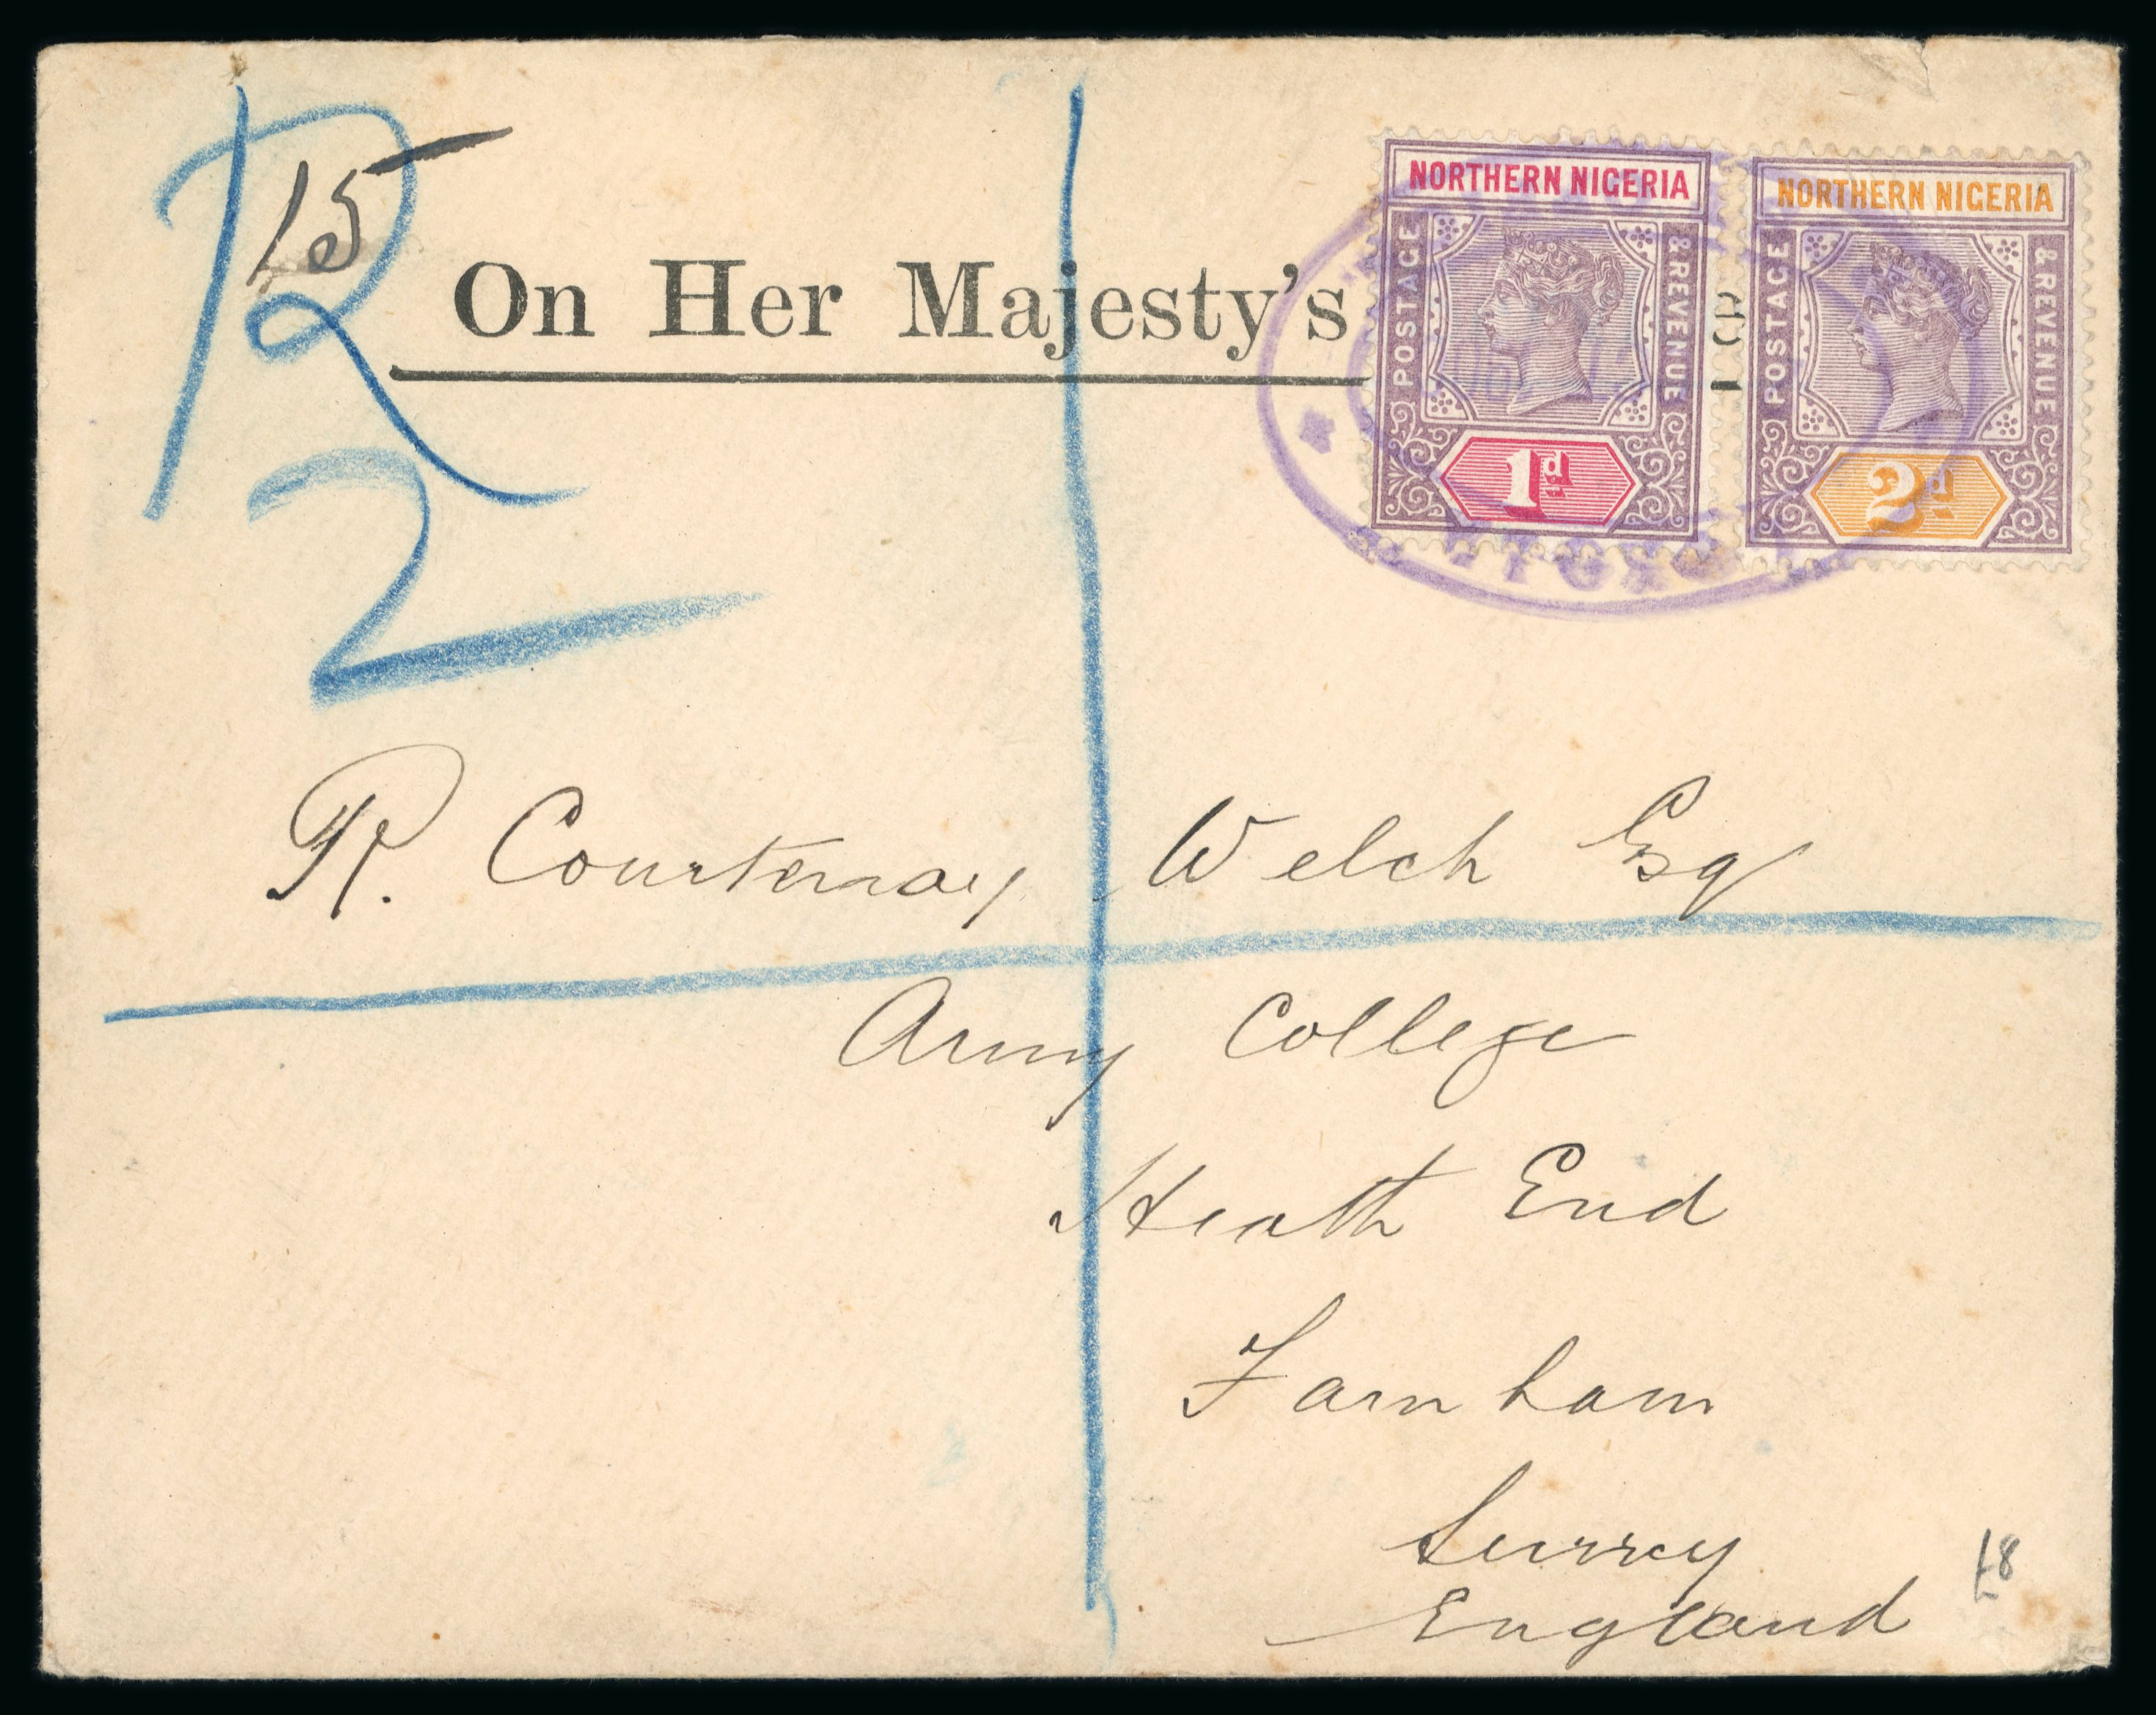 R
15
2
On Her Majesty's
NORTHERN NIGERIA
POSTAGE
& REVENUE
1d
NORTHERN NIGERIA
POSTAGE
& REVENUE
2d
R. Courtenay Welch Esq
Army College
Heath End
Farnham
Surrey
England
£8